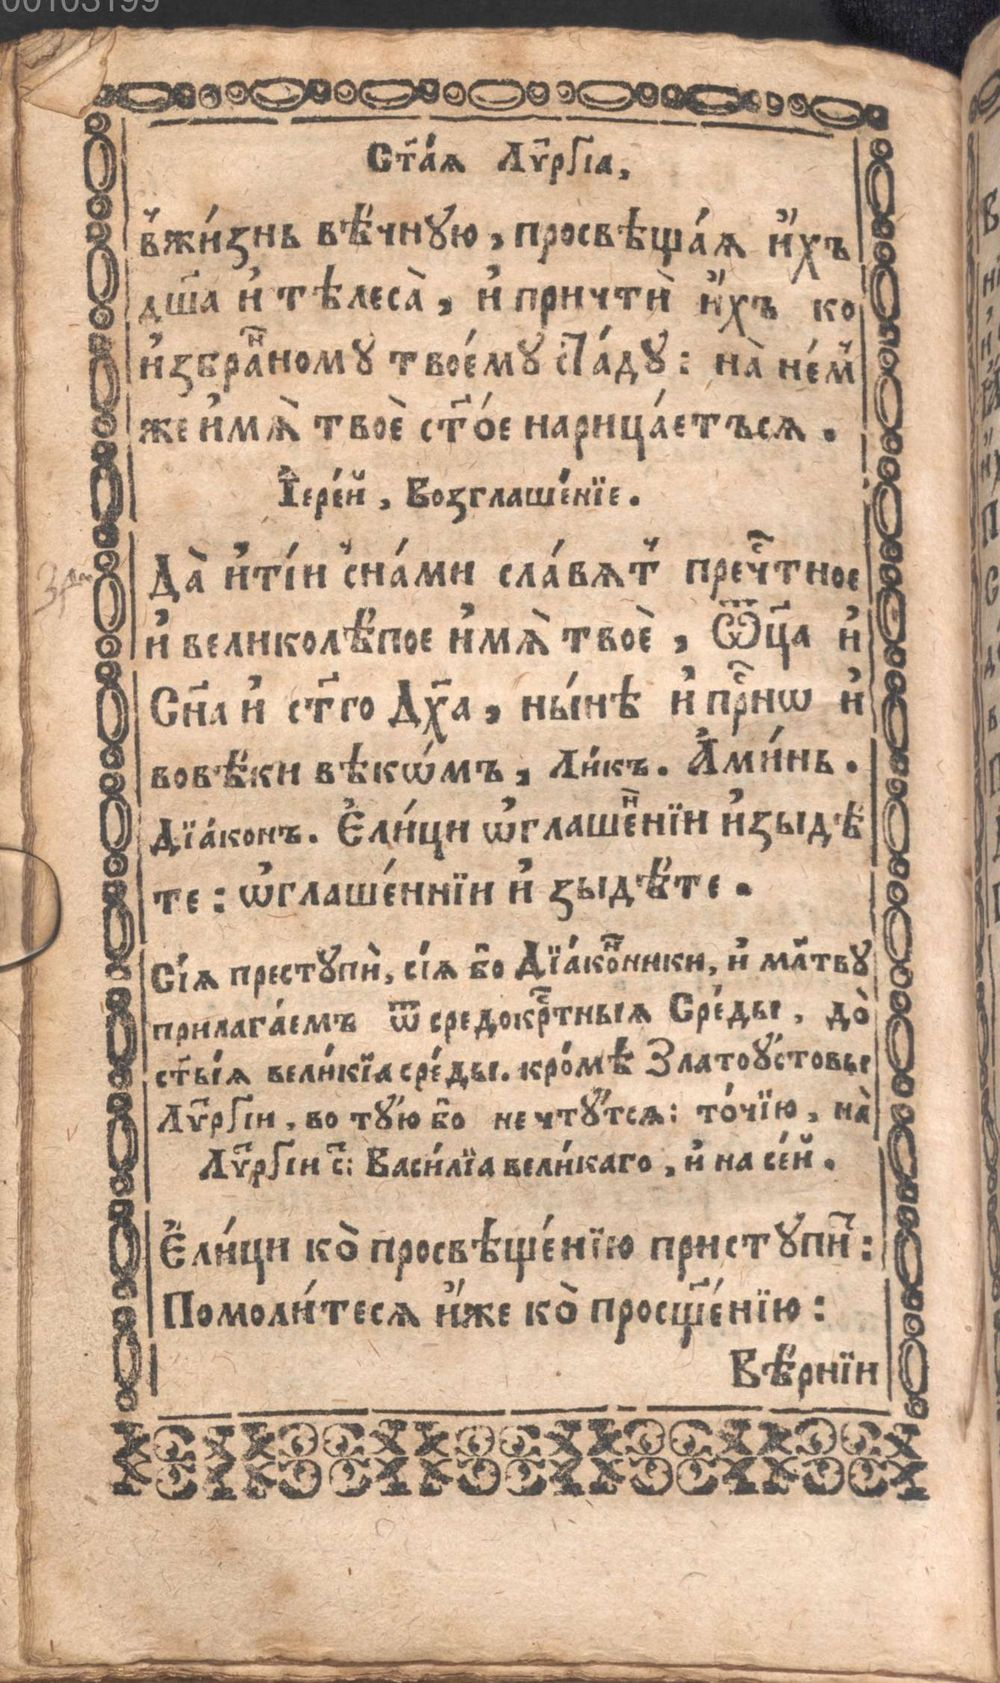 00103199
Ст҃а́ѧ Лѵ҃рґіа,
в̾жи́знь вѣ́чнꙋю, просвѣща́ѧ и́хъ
дш҃а и҆ тѣлеса̀, и҆ причтѝ и́хъ ко
и҆збра́нномꙋ твоє́мꙋ ста́дꙋ: на̀ не́м
же и҆мѧ̀ твоѐ ст҃о́е нарица́етъсѧ.
І҆ере́й, Возглаше́нїе.
Да̀ и҆ті́и с̾на́ми сла́вѧт̾ преч҃тное
и҆ великолѣ́пое и҆мѧ̀ твоѐ, Ѿц҃а и҆
Сн҃а и҆ ст҃го Дх҃а, ны́нѣ и҆ прⷭ҇нѡ и҆
вовѣ́ки вѣкѡ́мъ, Ли́къ. А҆ми́нь.
Дїа́конъ. Є҆ли́ци ѡ҆глаше́ннїи и҆зыдѣ́
те: ѡ҆глаше́ннїи и҆ зыдѣ́те.
Сі́ѧ престꙋпѝ, сі́ѧ бо҃ Дїа́конники, и҆ мл҃твꙋ
прилага́емъ ѿ средокрⷭ҇тныѧ Сре́ды, до̀
ст҃ы́ѧ вели́кїа сре́ды. кро́мѣ Златоꙋ́стовы
Лѵ҃рґіи, во тꙋ́ю бо҃ не чтꙋ́тсѧ: то́чїю, на̀
Лѵ҃рґіи с҃: Васи́лїа вели́каго, и҆ на се́й.
Є҆ли́ци ко̀ просвѣще́нїю пристꙋпи҃:
Помоли́тесѧ и҆́же ко̀ просщ҃е́нїю:
Вѣ́рнїи